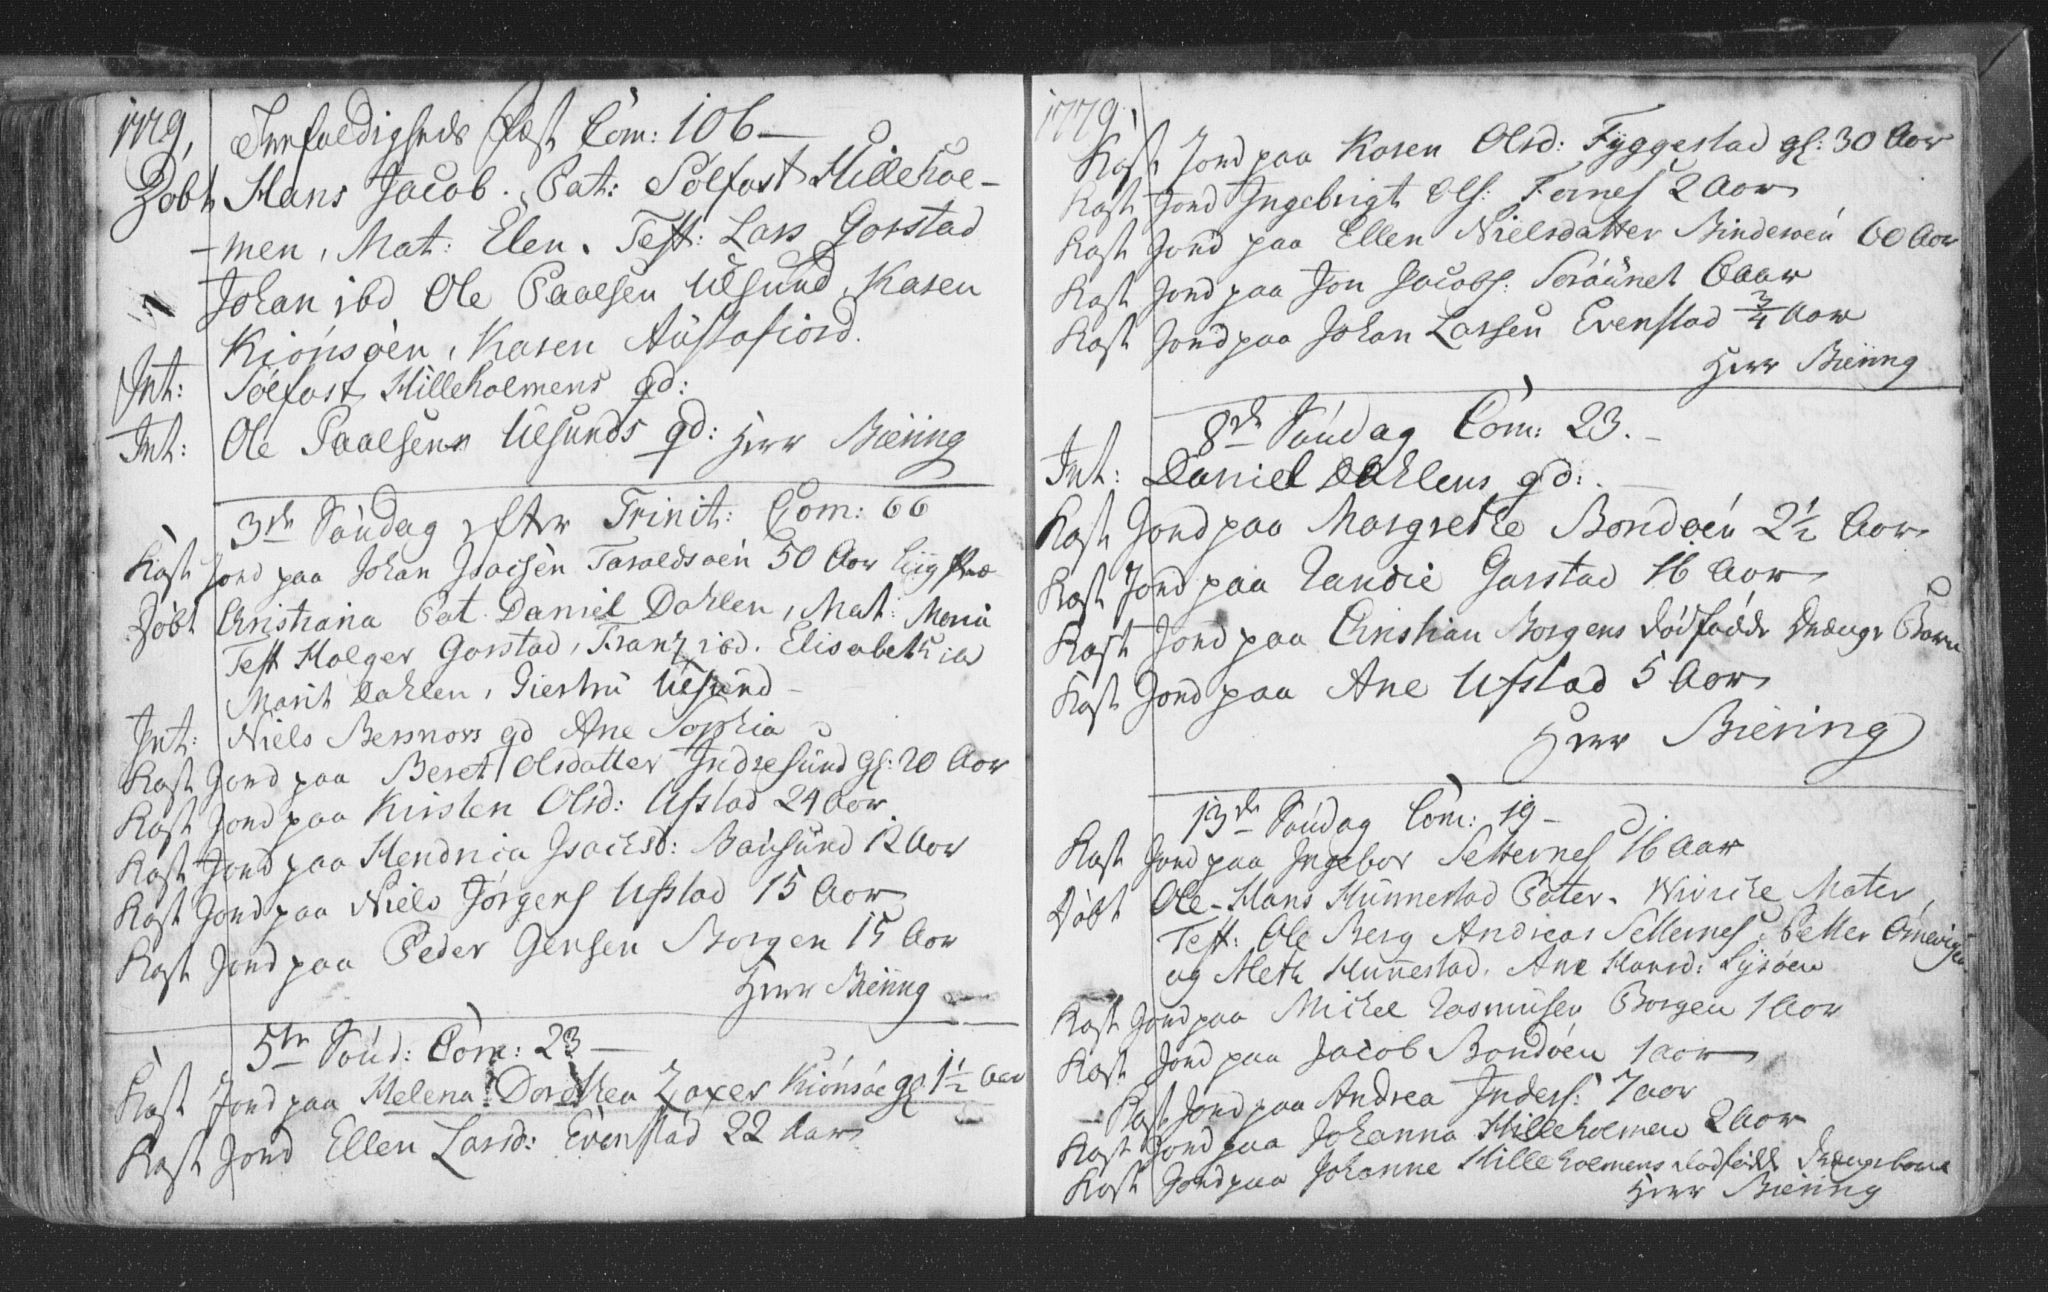 1779,
Trefoldigheds Fest Com: 106
Døbt Hans Jacob. Pat: Solfast Hilleholmen
men, Mat: Elen. Test: Lars Gorstad
Johan ibd Ole Paalsen Ulsund, Karen
Kiónsøen, Karen Austafiord.
Int: Solfast Hilleholmens qd:
Int: Ole Paalsens Ulsunds qd: Herr Biering
3de Søndag efter Trinit: Com: 66
Kast Jord paa Johan Isachsen Taraldsøen 50 Aar liig
Døbt Christiana Pat. Daniel Dahlen, Mat: Maria
Test Holger Gorstad, Franz ibd. Elisabeth ibd
Marit Dahlen, Giertru Ulsund
Int: Niels Bersnors qd Ane Sophia
Kast Jord paa Beret Olsdatter Indresund gl: 20 Aar
Kast Jord paa Kirsten Olsd: Ufstad 24 Aar
Kast Jord paa Hendrica Isachsd: Bausund 12 Aar
Kast Jord paa Niels Jørgens Ufstad 15 Aar
Kast Jord paa Peder Jensen Borgen 15 Aar
Herr Biering
5te Sønd: Com: 23
Kast Jord paa Helena Dorethea Zaxer Kiónsøe gl 1½ Aar
Kast Jord Ellen Larsd: Evenstad 22 Aar
1779,
Kast Jord paa Karen Olsd: Fyggestad gl: 30 Aar
Kast Jord Ingebrigt Ols: Fornes 2 Aar
Kast Jord paa Ellen Nielsdatter Bindesøen 60 Aar
Kast Jord paa Jon Jacobs: Aar
Kast Jord paa Johan Larsen Evenstad ¾ Aar
Herr Biering
8de Søndag Com: 23.
Int: Daniel Dahlens qd:
Kast Jord paa Margrethe Bondøen 2½ Aar
Kast Jord paa Gorstad 16 Aar
Kast Jord paa Christian Borgens dødfødde Drænge Barn
Kast Jord paa Ane Ufstad 5 Aar
Herr Biering
13de Søndag Com: 19
Kast Jord paa Ingebor Setternes 16 Aar
Døbt Ole. Hans Hunnestad Pater. Wiviche Mater,
Test: Ole Berg Andreas Setternes Petter
og Meth Hunnestad. Ane Hansd: Lysøen
Kast Jord paa Michel Rasmusen Borgen 1 Aar
Kast Jord paa Jacob Bondøen 1 aar
Kast Jord paa Andrea Inders: 7 aar
Kast Jord paa Johanna Hilleholmen 2 Aar
Kast Jord paa Johanne Hilleholmens dødfødde Drængebarn
Herr Biering